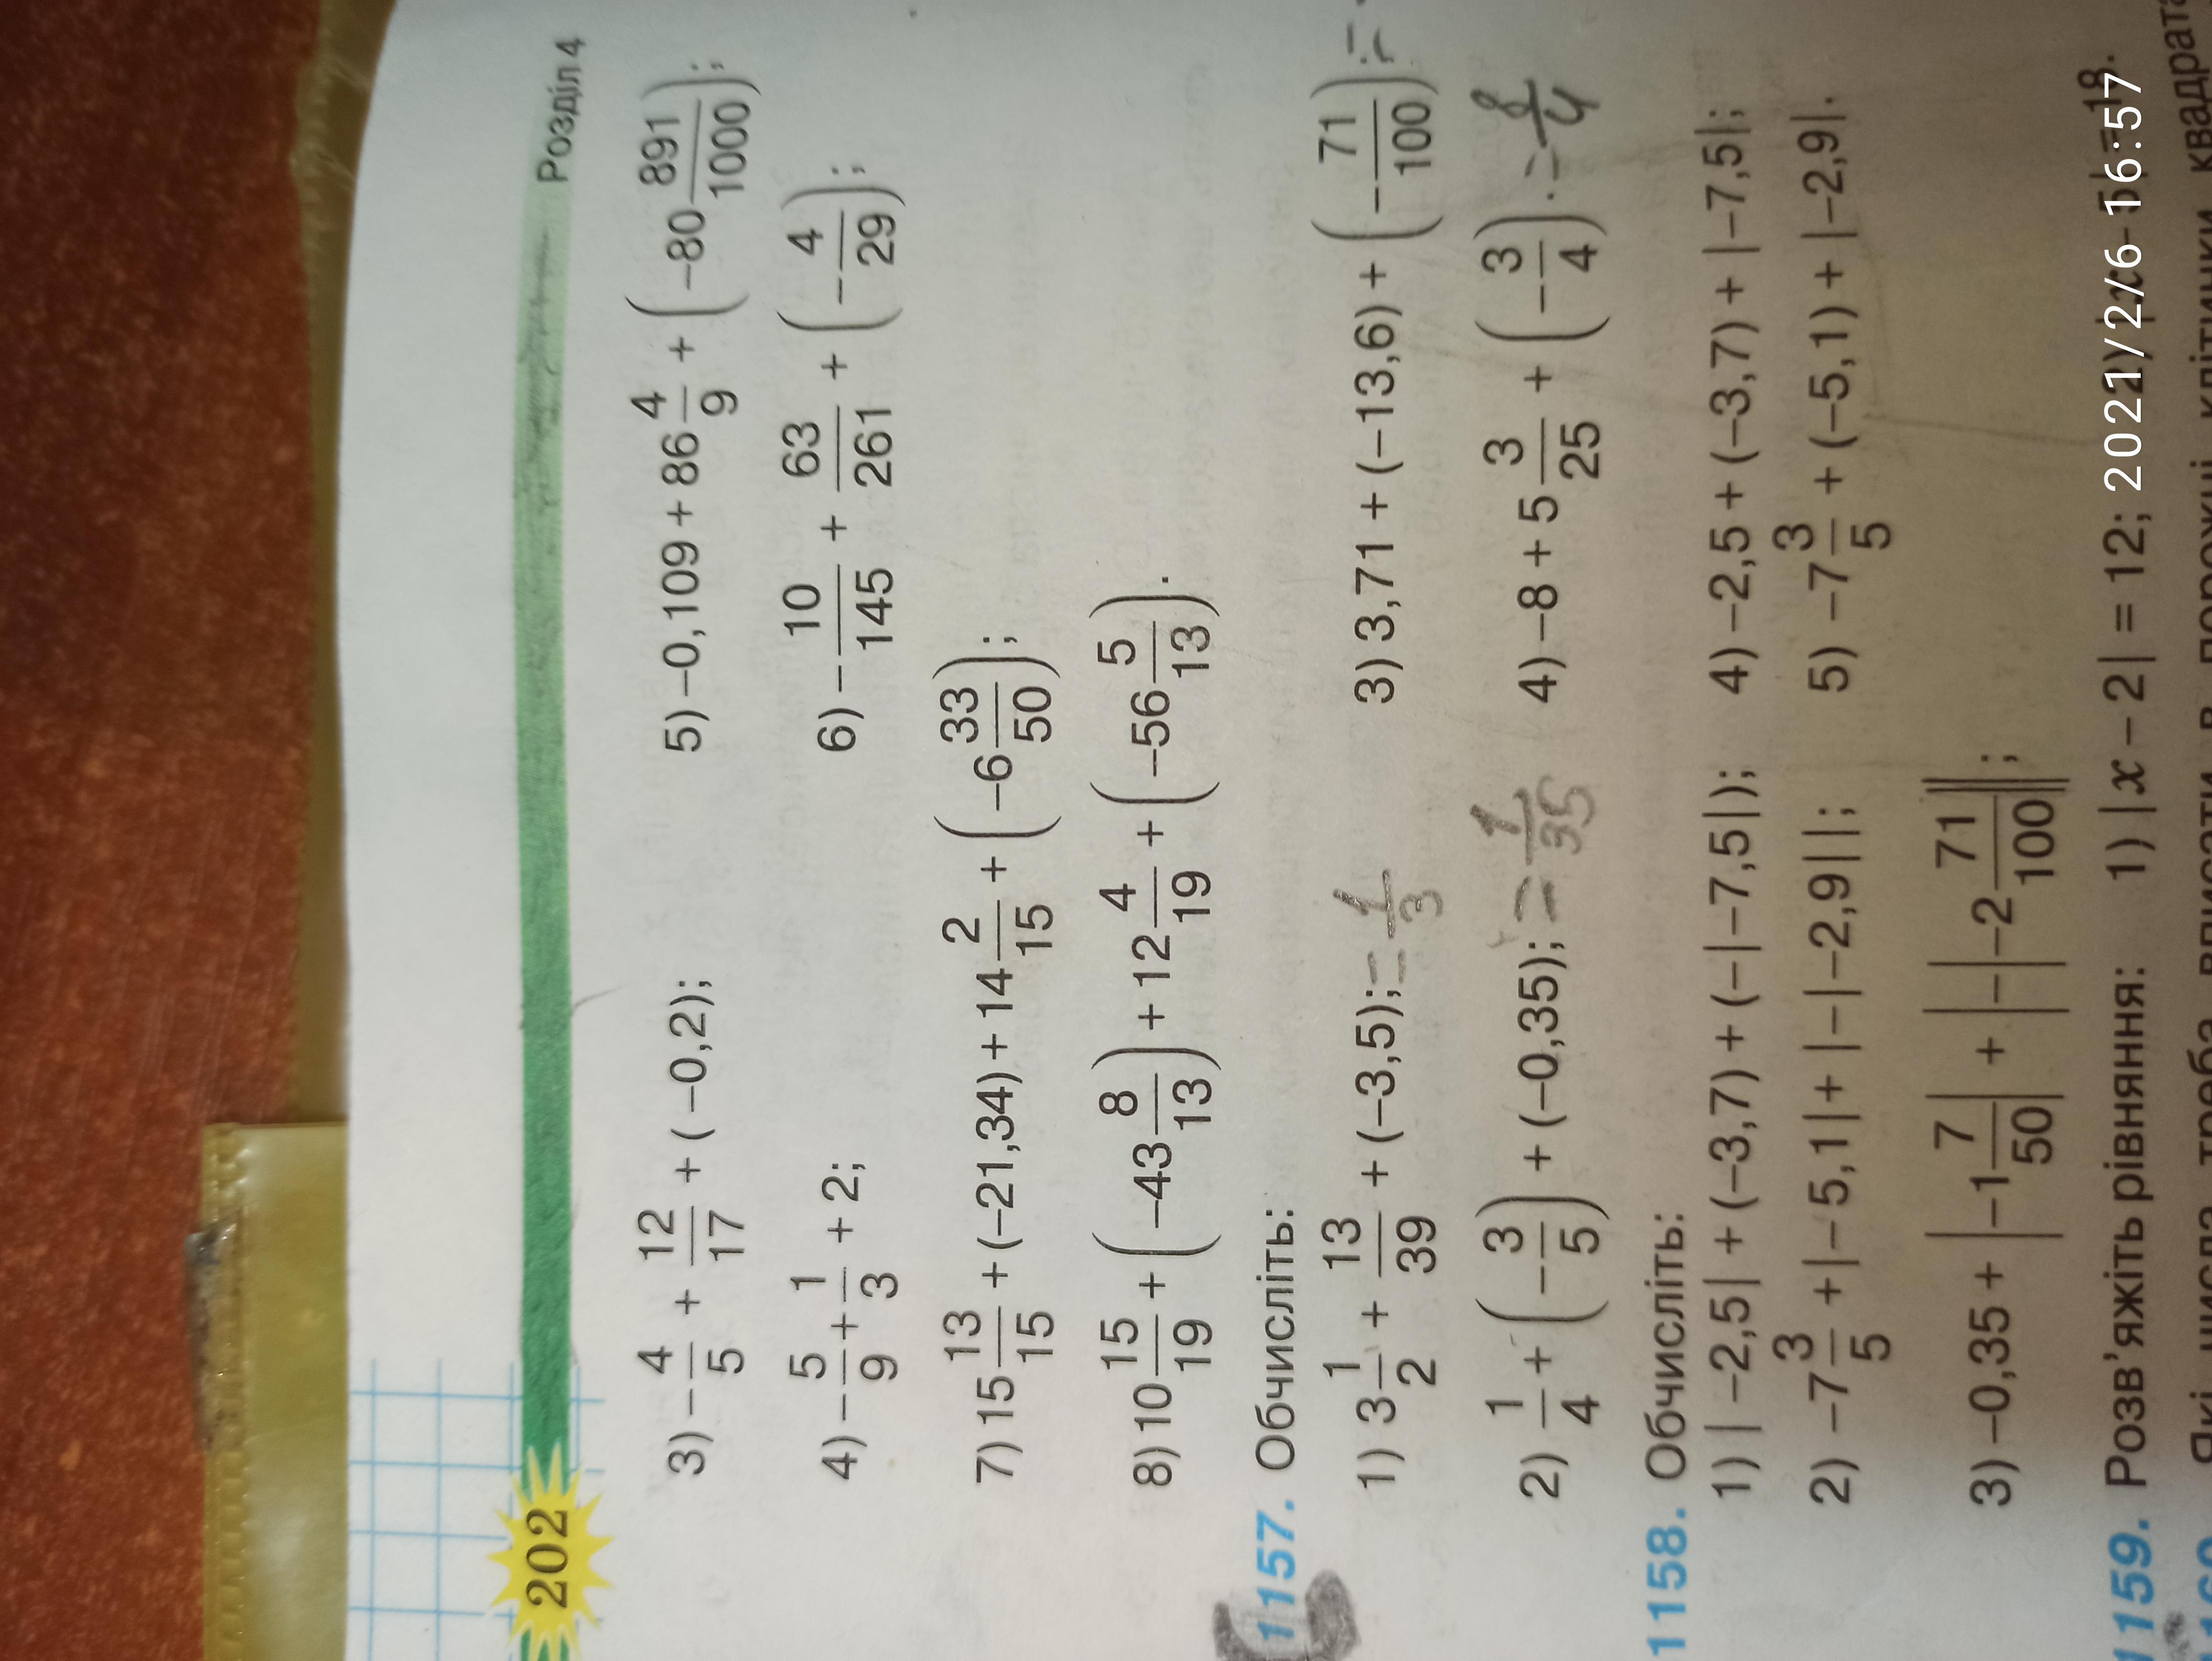 202 Розділ 4
3) −4/5 + 12/17 + (−0,2); 5) −0,109 + 86 4/9 + (−80 891/1000);
4) −5/9 + 1/3 + 2; 6) −10/145 + 63/261 + (−4/29);
7) 15 13/15 + (−21,34) + 14 2/15 + (−6 33/50);
8) 10 15/19 + (−43 8/13) + 12 4/19 + (−56 5/13).
1157. Обчисліть:
1) 3 1/2 + 13/39 + (−3,5); = 1/3 3) 3,71 + (−13,6) + (−71/100); =
2) 1/4 + (−3/5) + (−0,35); = 1/35 4) −8 + 5 3/25 + (−3/4). = 8/4
1158. Обчисліть:
1) |−2,5| + (−3,7) + (−|−7,5|); 4) −2,5 + (−3,7) + |−7,5|;
2) −7 3/5 + |−5,1| + |−|−2,9||; 5) −7 3/5 + (−5,1) + |−2,9|.
3) −0,35 + |−1 7/50| + |−|−2 71/100||;
1159. Розв'яжіть рівняння: 1) |x − 2| = 12; 2) |x − 5| = 18.
2021/2/6 16:57
Які числа треба вписати в порожні клітинки квадрата